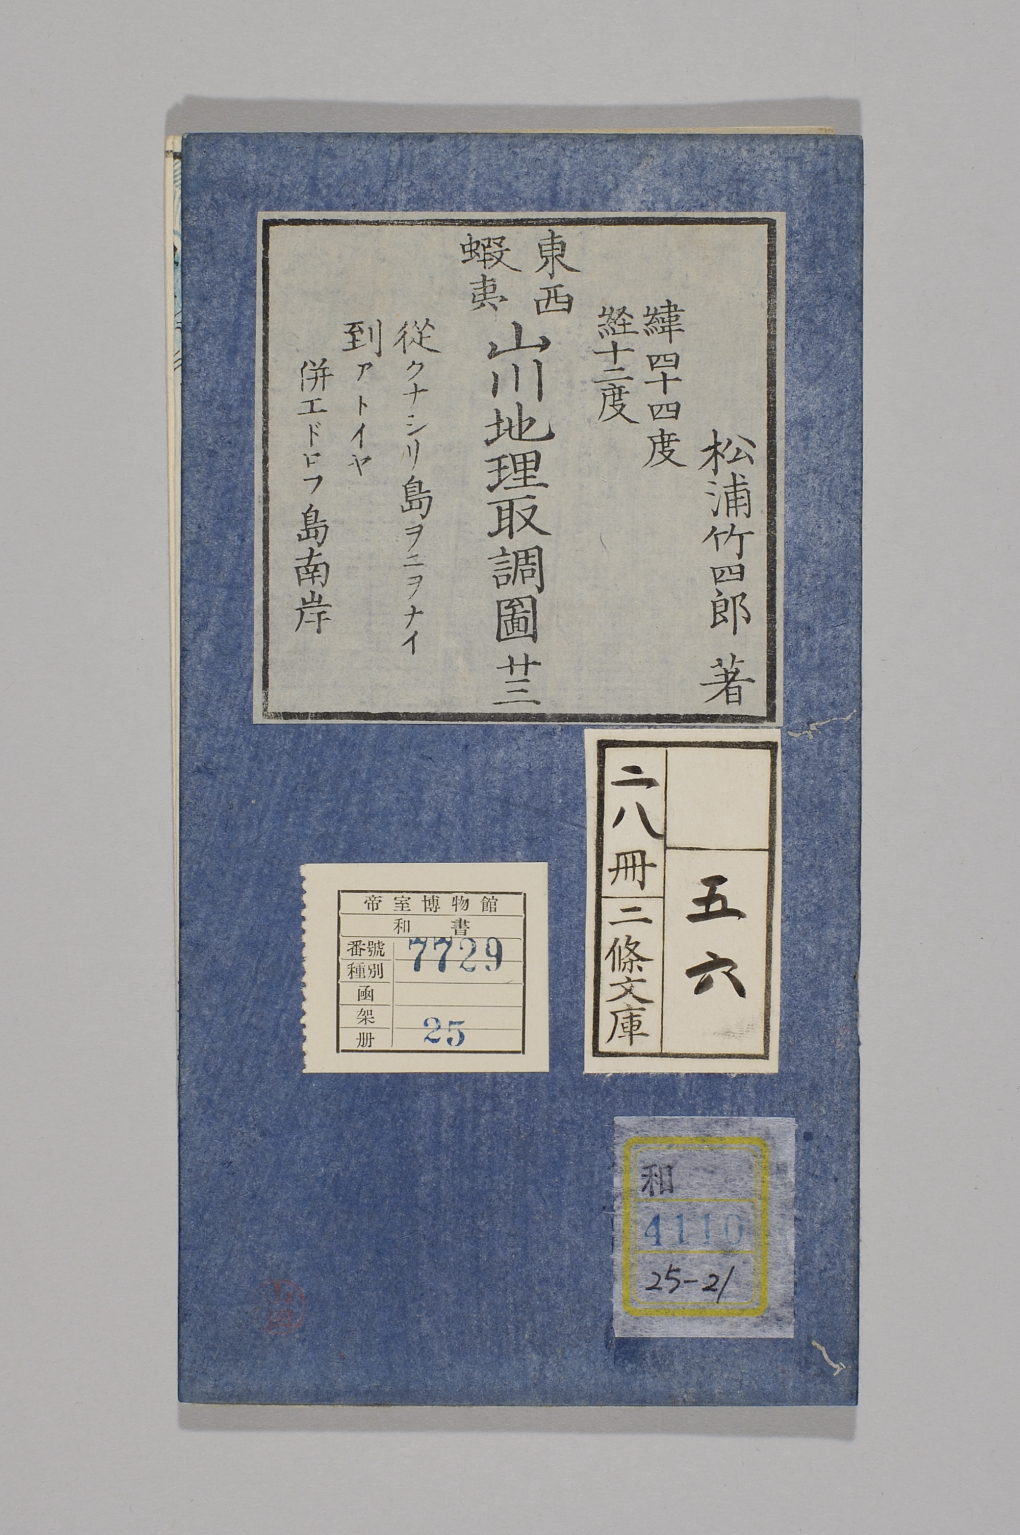 松浦竹四郎 著
緯四十四度
経十二度
東西
蝦夷
山川地理取調圖 廿三
從クナシリ島ヲニヲナイ
到アトイヤ
併エドロフ島南岸
五六
二八冊
二條文庫
帝室博物館
和書
番號 7729
種別
函
架
册 25
和
4110
25-21